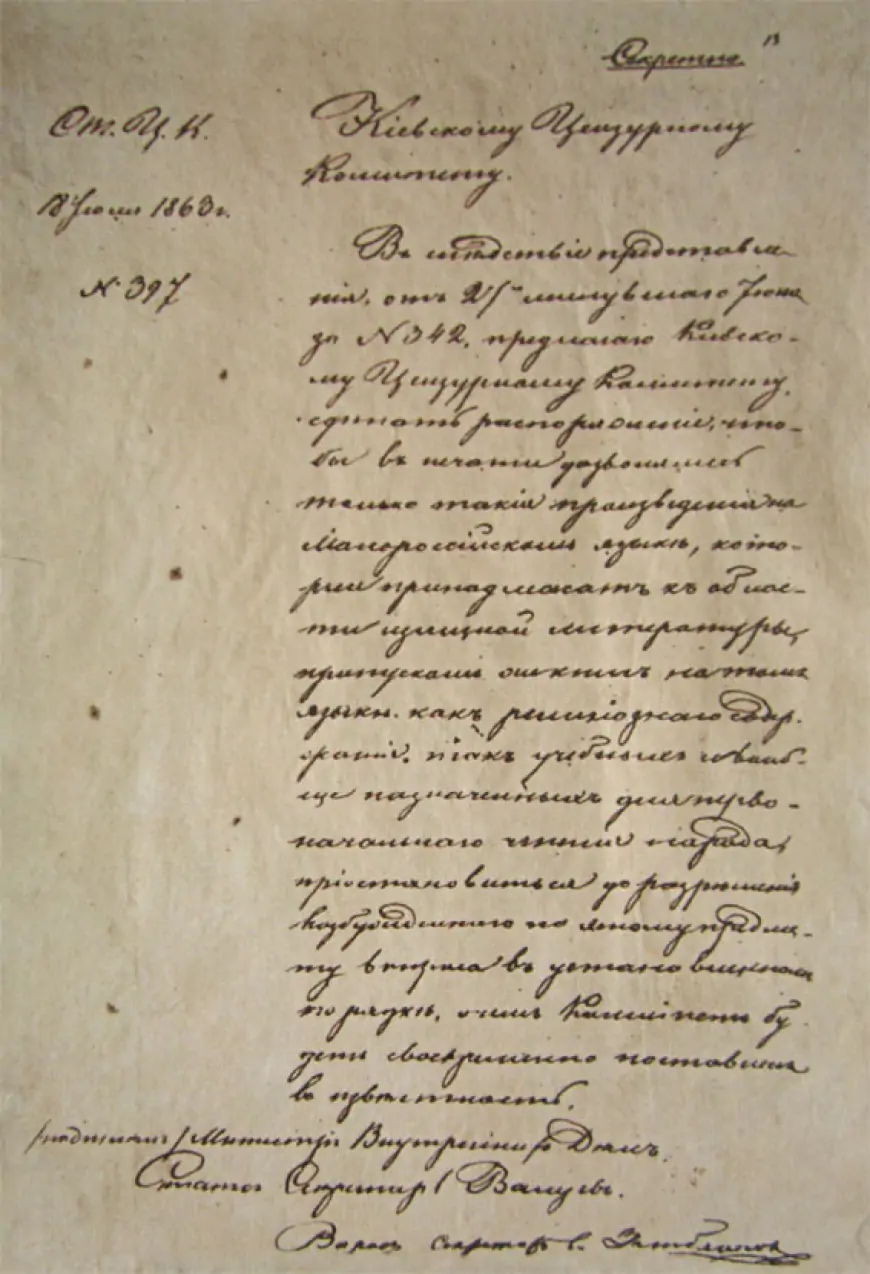 Секретно.
От. Ц. К.
Кіевскому Цензурному
Комитету.
18 Іюля 1863 г.
Въ слѣдствіе представле-
№ 397
нія, отъ 27го минувшаго Іюня
за № 342, предлагаю Кіевско-
му Цензурному Комитету,
сдѣлать распоряженіе, что-
бы въ печати дозволялись
только такія произведенія на
Малороссійскомъ языкѣ, кото-
рыя принадлежатъ къ облас-
ти изящной литературы,
пропускомъ же книгъ на томъ
языкѣ, какъ религіознаго содер-
жанія, такъ учебныхъ и вооб-
ще назначенныхъ для перво-
начальнаго чтенія народа,
пріостановиться до разрѣшенія
возбужденнаго по этому предме-
ту вопроса въ установленномъ
порядкѣ, о чемъ Комитетъ бу
детъ своевременно поставленъ
въ извѣстность.
(подписалъ) Министръ Внутреннихъ Дѣлъ,
Статсъ Секретарь Валуевъ.
секретарь